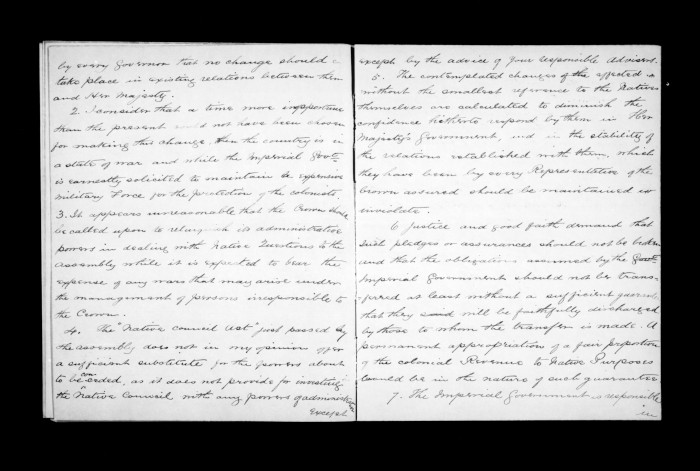 by every Governor that no change should
take place in existing relations between them
and Her Majesty.
2. I consider that a time more inopportune
than the present could not have been chosen
for making this change when the country is in
a state of war and while the Imperial Govt
is earnestly solicited to maintain be expensive
Military Force for the protection of the colonists.
3. It appears unreasonable that the Crown should
be called upon to relinquish its administrative
powers in dealing with Native Questions to the
Assembly while it is expected to bear the
expense of any wars that may arise under
the management of persons irresponsible to
the Crown.
4. The "Native Council Act" just passed by
the assembly does not in my opinion offer
a sufficient substitute for the powers about
to be conceded, as it does not provide for investing
the "Native Council with any powers of administration
Except
except by the advice of your responsible advisers.
5. The contemplated changes if the effected
without the smallest reference to the Natives
themselves are calculated to diminish the
confidence hitherto reposed by them in Her
Majesty's Government, and in the stability of
the relations established with them, which
they have been by every Representative of the
Crown assured should be maintained
inviolate.
6 Justice and good faith demand that
such pledges or assurances should not be broken
and that the obligations assumed by the Govt
Imperial Government should not be trans-
ferred at least without a sufficient guarantee
that they will be faithfully discharged
by those to whom the transfer is made. A
permanent appropriation of a fair proportion
of the colonial Revenue to Native Purposes
would be in the nature of such guarantee.
7. The Imperial Government is responsible
in